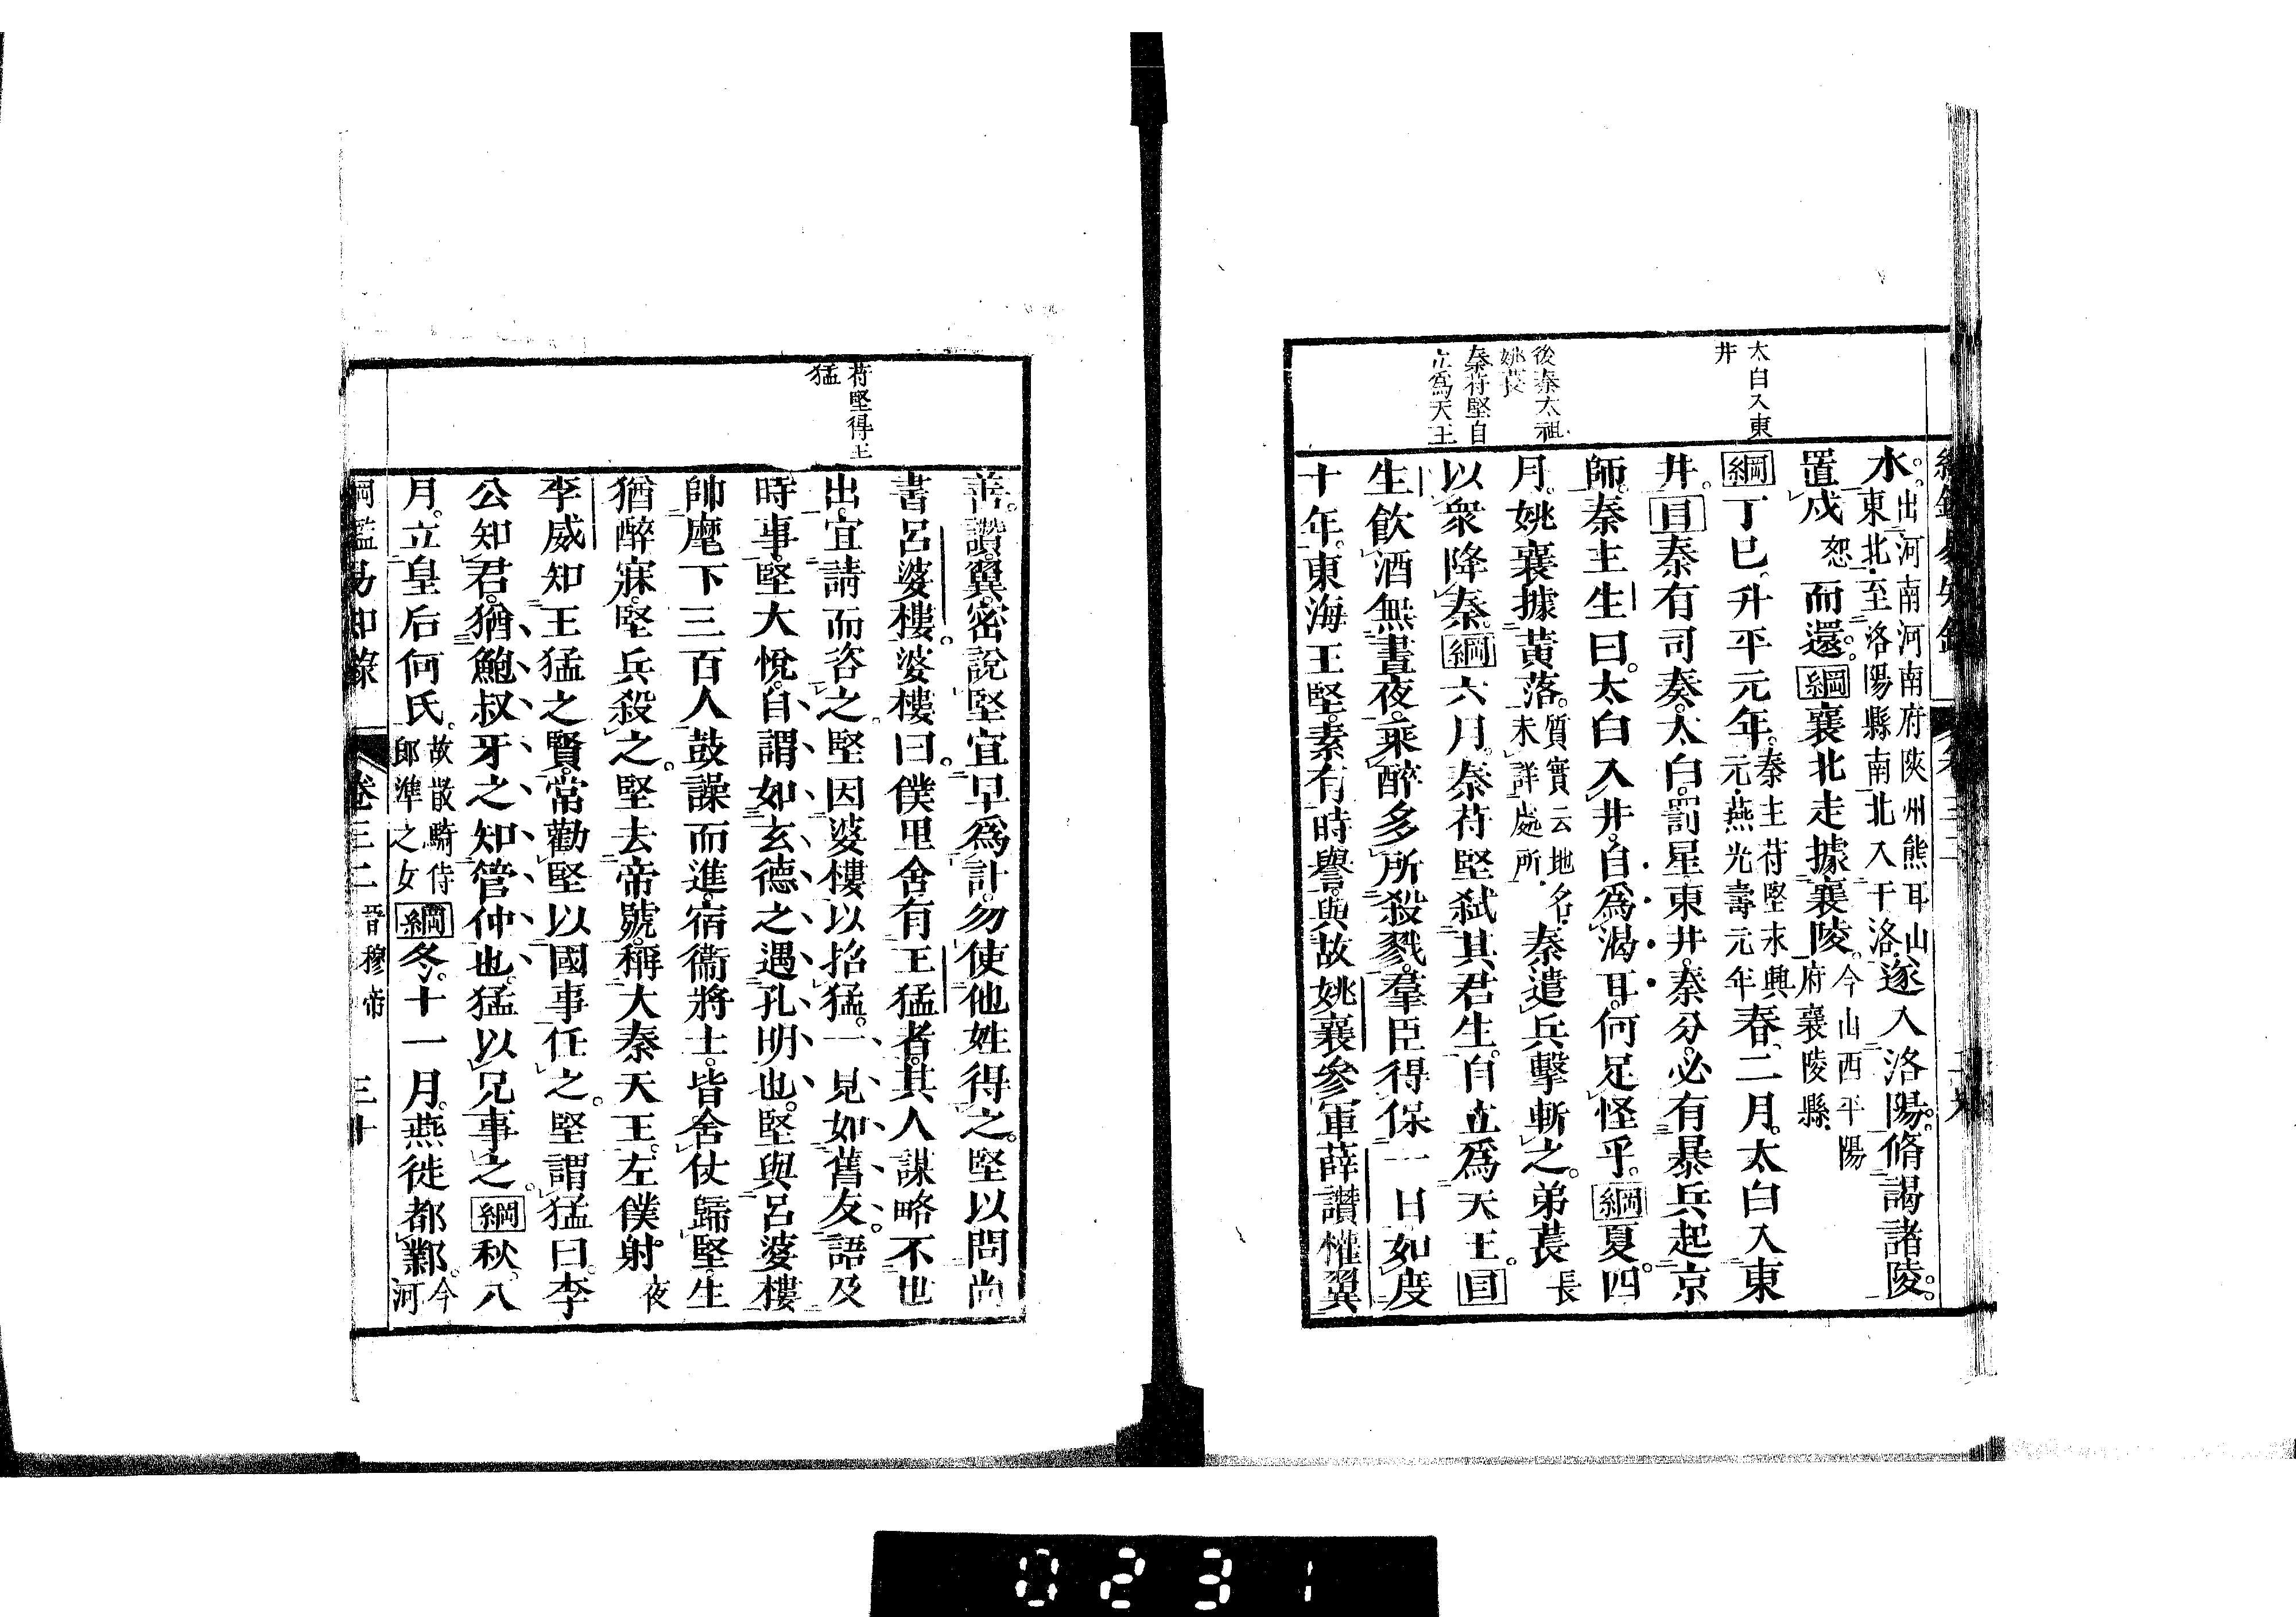 太白入東
井
後秦太祖
姚萇
秦苻堅自
立爲天王
水。出河南河南府陝州熊耳山
東北至洛陽縣南北入于洛。遂入洛陽。脩謁諸陵。
置戍恕而還。綱襄北走據襄陵。今山西平陽
府襄陵縣
綱丁巳升平元年。秦主苻堅永興
元燕光壽元年春二月。太白入東
井。目秦有司奏太白罰星東井秦分。必有暴兵起京
師。秦主生曰。太白入井。自爲渴耳。何足怪乎。綱夏。四
月。姚襄據黃落。質實云地名
未詳處所秦遣兵擊斬之。弟萇長
以衆降秦。綱六月。秦苻堅弒其君生。自立爲天王。目
生飲酒無晝夜。乘醉多所殺戮。羣臣得保一日如度
十年。東海王堅。素有時譽。與故姚襄參軍薛讚權翼
苻堅得王
猛
善。讚翼密說堅宜早爲計。勿使他姓得之。堅以問尚
書呂婆樓。婆樓曰。僕里舍有王猛者。其人謀略不世
出。宜請而咨之。堅因婆樓以招猛。一見如舊友。語及
時事。堅大悅。自謂如玄德之遇孔明也。堅與呂婆樓
帥麾下三百人鼓譟而進。宿衞將士。皆舍仗歸堅。生
猶醉寐。堅兵殺之。堅去帝號。稱大秦天王。左僕射夜
李威知王猛之賢。常勸堅以國事任之。堅謂猛曰。李
公知君。猶鮑叔牙之知管仲也。猛以兄事之。綱秋。八
月。立皇后何氏。故散騎侍
郎準之女綱冬。十一月。燕徙都鄴。今
河
綱鑑易知錄 卷三二 晉穆帝 三十